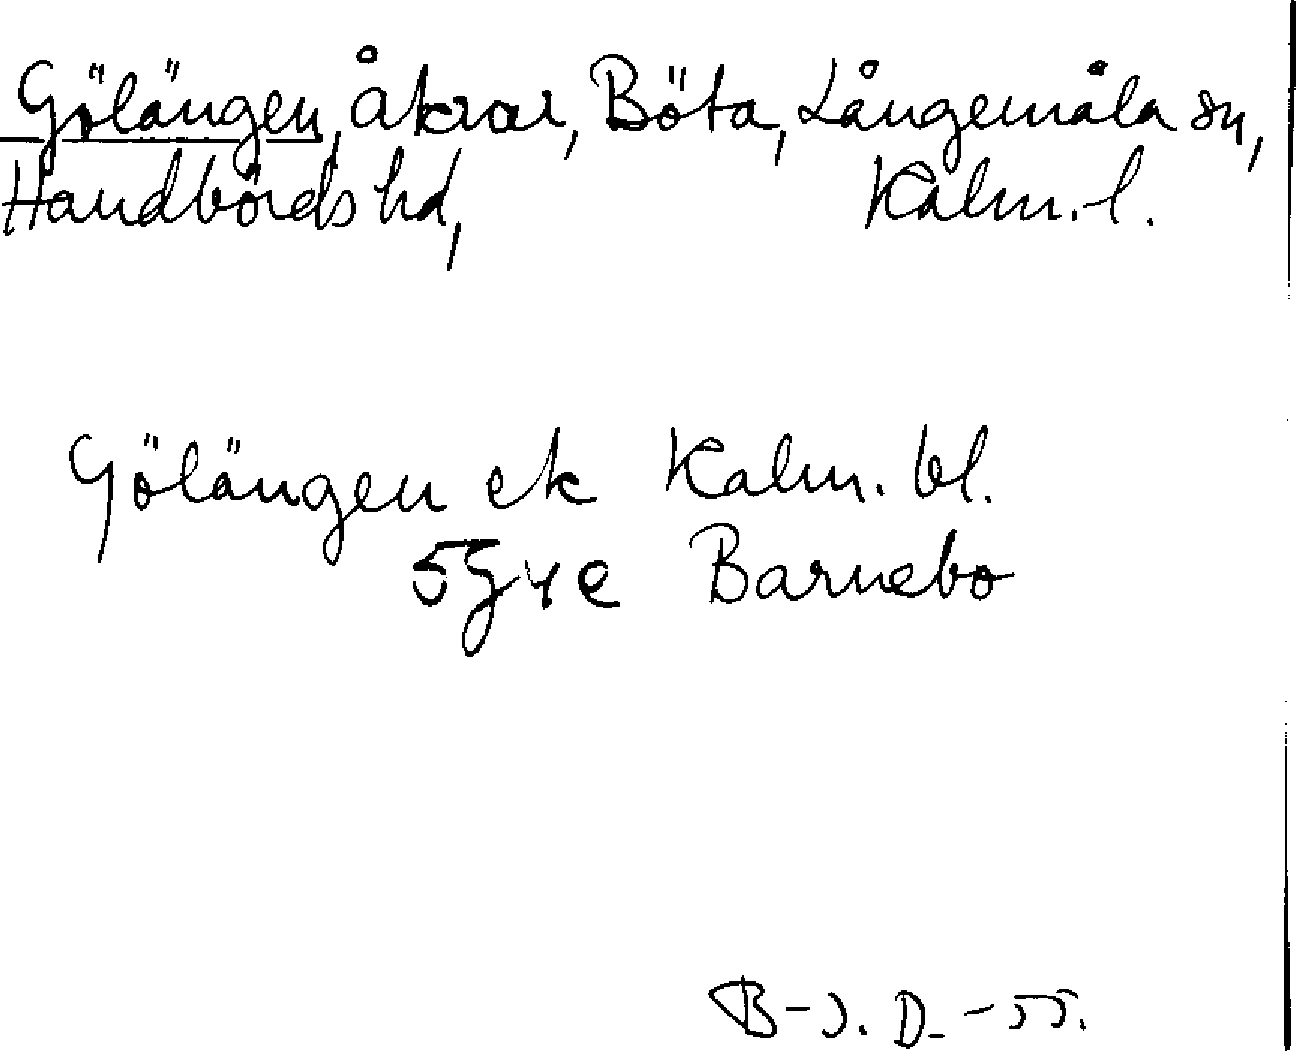 Gölängen, åkrar, Böta, Långemåla sn,
Handbörds hd, Kalm. l.
Gölängen ek Kalm. bl.
5G4e Barnebo
B-J. D. -55.